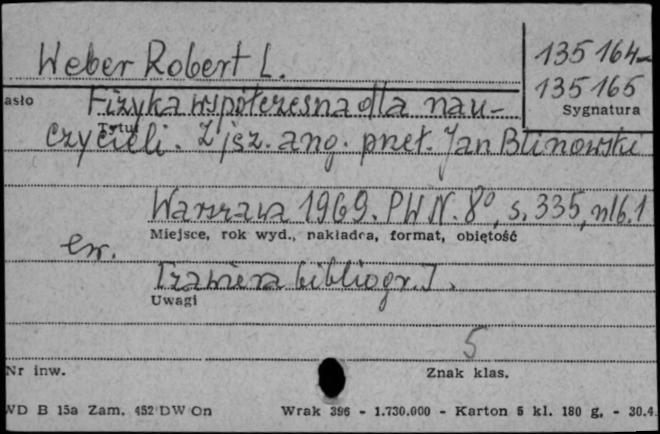 Weber Robert L.
135 164-
135 165
Sygnatura
asło
Fizyka współczesna dla nau-
Tytuł
czycieli. Z jęz. ang. przeł. Jan Blinowski
Warszawa 1969. PWN. 8°, s. 335, nlb. 1
Miejsce, rok wyd., nakładca, format, objętość
[zawiera bibliogr.].
Uwagi
5
Nr inw.
Znak klas.
WD B 15a Zam. 452 DW On Wrak 396 - 1.730.000 - Karton 5 kl. 180 g. - 30.4.